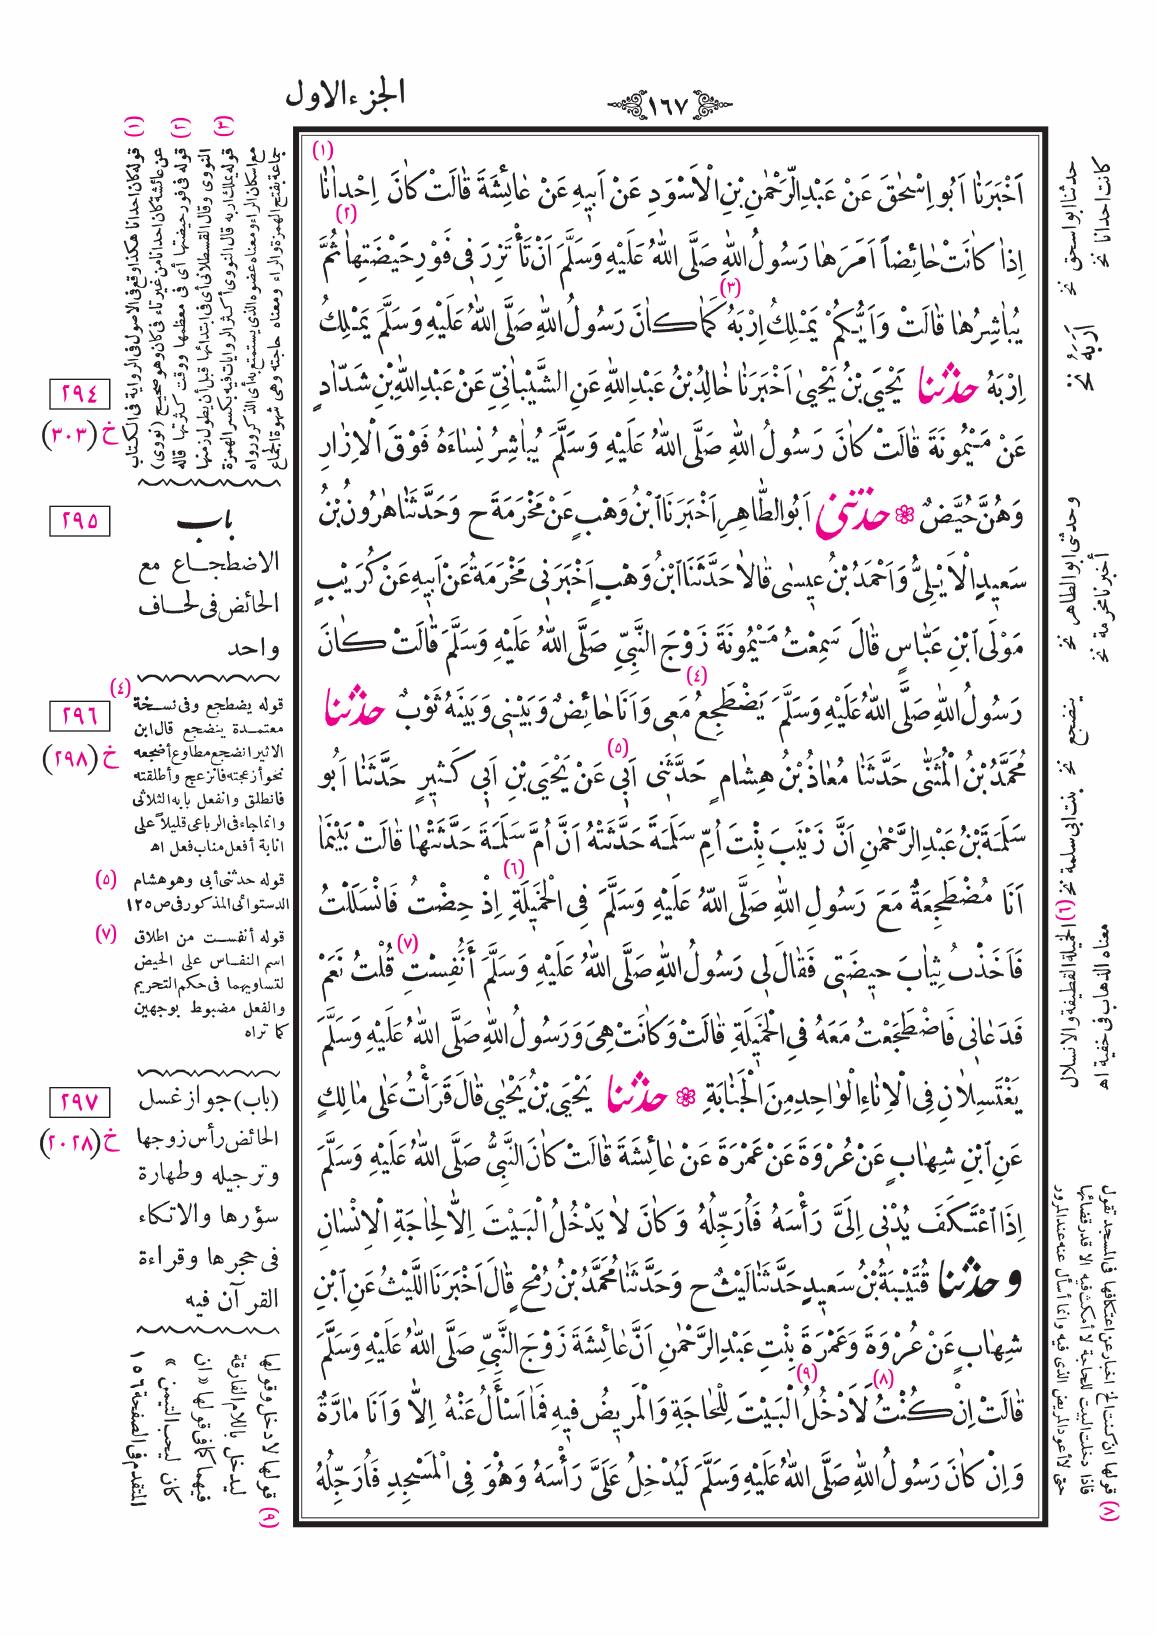 الجزء الاول
١٦٧
اَخْبَرَنَا اَبُو اِسْحٰقَ عَنْ عَبْدِ الرَّحْمٰنِ بْنِ الْاَسْوَدِ عَنْ اَبِيهِ عَنْ عَائِشَةَ قَالَتْ كَانَ اِحْدَانَا (١)
اِذَا كَانَتْ حَائِضاً اَمَرَهَا رَسُولُ اللّٰهِ صَلَّى اللّٰهُ عَلَيْهِ وَسَلَّمَ اَنْ تَأْتَزِرَ فِى فَوْرِ حَيْضَتِهَا (٢) ثُمَّ
يُبَاشِرُهَا قَالَتْ وَاَيُّكُمْ يَمْلِكُ اِرْبَهُ (٣) كَمَا كَانَ رَسُولُ اللّٰهِ صَلَّى اللّٰهُ عَلَيْهِ وَسَلَّمَ يَمْلِكُ
اِرْبَهُ حَدَّثَنَا يَحْيَى بْنُ يَحْيٰى اَخْبَرَنَا خَالِدُ بْنُ عَبْدِ اللّٰهِ عَنِ الشَّيْبَانِيِّ عَنْ عَبْدِ اللّٰهِ بْنِ شَدَّادٍ
عَنْ مَيْمُونَةَ قَالَتْ كَانَ رَسُولُ اللّٰهِ صَلَّى اللّٰهُ عَلَيْهِ وَسَلَّمَ يُبَاشِرُ نِسَاءَهُ فَوْقَ الْاِزَارِ
وَهُنَّ حُيَّضٌ ❁ حَدَّثَنِى اَبُو الطَّاهِرِ اَخْبَرَنَا ابْنُ وَهْبٍ عَنْ مَخْرَمَةَ ح وَحَدَّثَنَا هٰرُونُ بْنُ
سَعِيدٍ الْاَيْلِيُّ وَاَحْمَدُ بْنُ عِيسٰى قَالَا حَدَّثَنَا ابْنُ وَهْبٍ اَخْبَرَنِى مَخْرَمَةُ عَنْ اَبِيهِ عَنْ كُرَيْبٍ
مَوْلَى ابْنِ عَبَّاسٍ قَالَ سَمِعْتُ مَيْمُونَةَ زَوْجَ النَّبِيِّ صَلَّى اللّٰهُ عَلَيْهِ وَسَلَّمَ قَالَتْ كَانَ
رَسُولُ اللّٰهِ صَلَّى اللّٰهُ عَلَيْهِ وَسَلَّمَ يَضْطَجِعُ (٤) مَعِى وَاَنَا حَائِضٌ وَبَيْنِى وَبَيْنَهُ ثَوْبٌ حَدَّثَنَا
مُحَمَّدُ بْنُ الْمُثَنّٰى حَدَّثَنَا مُعَاذُ بْنُ هِشَامٍ حَدَّثَنِى اَبِى (٥) عَنْ يَحْيَى بْنِ اَبِى كَثِيرٍ حَدَّثَنَا اَبُو
سَلَمَةَ بْنُ عَبْدِ الرَّحْمٰنِ اَنَّ زَيْنَبَ بِنْتَ اُمِّ سَلَمَةَ حَدَّثَتْهُ اَنَّ اُمَّ سَلَمَةَ حَدَّثَتْهَا قَالَتْ بَيْنَمَا
اَنَا مُضْطَجِعَةٌ مَعَ رَسُولِ اللّٰهِ صَلَّى اللّٰهُ عَلَيْهِ وَسَلَّمَ فِى الْخَمِيلَةِ (٦) اِذْ حِضْتُ فَانْسَلَلْتُ
فَاَخَذْتُ ثِيَابَ حِيضَتِى فَقَالَ لِى رَسُولُ اللّٰهِ صَلَّى اللّٰهُ عَلَيْهِ وَسَلَّمَ أَنُفِسْتِ (٧) قُلْتُ نَعَمْ
فَدَعَانِى فَاضْطَجَعْتُ مَعَهُ فِى الْخَمِيلَةِ قَالَتْ وَكَانَتْ هِىَ وَرَسُولُ اللّٰهِ صَلَّى اللّٰهُ عَلَيْهِ وَسَلَّمَ
يَغْتَسِلَانِ فِى الْاِنَاءِ الْوَاحِدِ مِنَ الْجَنَابَةِ ❁ حَدَّثَنَا يَحْيَى بْنُ يَحْيٰى قَالَ قَرَأْتُ عَلٰى مَالِكٍ
عَنِ ابْنِ شِهَابٍ عَنْ عُرْوَةَ عَنْ عَمْرَةَ عَنْ عَائِشَةَ قَالَتْ كَانَ النَّبِيُّ صَلَّى اللّٰهُ عَلَيْهِ وَسَلَّمَ
اِذَا اعْتَكَفَ يُدْنِى اِلَىَّ رَأْسَهُ فَاُرَجِّلُهُ وَكَانَ لَا يَدْخُلُ الْبَيْتَ اِلَّا لِحَاجَةِ الْاِنْسَانِ
و حَدَّثَنَا قُتَيْبَةُ بْنُ سَعِيدٍ حَدَّثَنَا لَيْثٌ ح وَحَدَّثَنَا مُحَمَّدُ بْنُ رُمْحٍ قَالَ اَخْبَرَنَا اللَّيْثُ عَنِ ابْنِ
شِهَابٍ عَنْ عُرْوَةَ وَعَمْرَةَ بِنْتِ عَبْدِ الرَّحْمٰنِ اَنَّ عَائِشَةَ زَوْجَ النَّبِيِّ صَلَّى اللّٰهُ عَلَيْهِ وَسَلَّمَ
قَالَتْ اِنْ كُنْتُ (٨) لَاَدْخُلُ (٩) الْبَيْتَ لِلْحَاجَةِ وَالْمَرِيضُ فِيهِ فَمَا اَسْأَلُ عَنْهُ اِلَّا وَاَنَا مَارَّةٌ
وَاِنْ كَانَ رَسُولُ اللّٰهِ صَلَّى اللّٰهُ عَلَيْهِ وَسَلَّمَ لَيُدْخِلُ عَلَىَّ رَأْسَهُ وَهُوَ فِى الْمَسْجِدِ فَاُرَجِّلُهُ
كانت احدانا نخ
حدثنا ابو اسحق نخ
اَرَبَهُ نخ
وحدثنى ابو الطاهر نخ
أخبرنا مخرمة نخ
ينضجع نخ
بنت ابى سلمة نخ
(٦) الخميلة القطيفة والانسلال
معناه الذهاب فى خفية اه
(٨) قولها ان كنت الخ اخبار عن اعتكافها فى المسجد تقول
فاذا دخلت البيت للحاجة لا أمكث فيه الا قدر قضائها
حتى لا أعود المريض الذى فيه وانما أسأل عنه عند المرور
(١) قوله كان احدانا هكذا وقع فى الاصول فى الرواية فى الكتاب
عن عائشة كان احدانا من غير تاء فى كان وهو صحيح (نووى)
(٢) قوله فى فور حيضتها أى فى معظمها ووقت كثرتها قاله
النووى وقال القسطلانى أى فى ابتدائها قبل أن يطول زمنها
(٣) قوله يملك اربه قال النووى أكثر الروايات فيه بكسر الهمزة
مع اسكان الراء ومعناه عضوه الذى يستمتع به أى الذكر ورواه
جماعة بفتح الهمزة والراء ومعناه حاجته وهى شهوة الجماع
٢٩٤
خ (٣٠٣)
٢٩٥
باب
الاضطجاع مع
الحائض فى لحاف
واحد
٢٩٦
خ (٢٩٨)
(٤) قوله يضطجع وفى نسخة
معتمدة ينضجع قال ابن
الاثير انضجع مطاوع أضجعه
نحو أزعجته فانزعج وأطلقته
فانطلق وانفعل بابه الثلاثى
وانما جاء فى الرباعى قليلاً على
انابة أفعل مناب فعل اه
(٥) قوله حدثنى أبى وهو هشام
الدستوائى المذكور فى ص ١٢٥
(٧) قوله أنفست من اطلاق
اسم النفاس على الحيض
لتساويهما فى حكم التحريم
والفعل مضبوط بوجهين
كما تراه
٢٩٧
خ (٢٠٢٨)
(باب) جواز غسل
الحائض رأس زوجها
وترجيله وطهارة
سؤرها والاتكاء
فى حجرها وقراءة
القرآن فيه
(٩) قولها لادخل وقولها
ليدخل باللام الفارقة
فيهما كما فى قولها «ان
كان ليحب التيمن»
المتقدم فى الصفحة ١٥٦